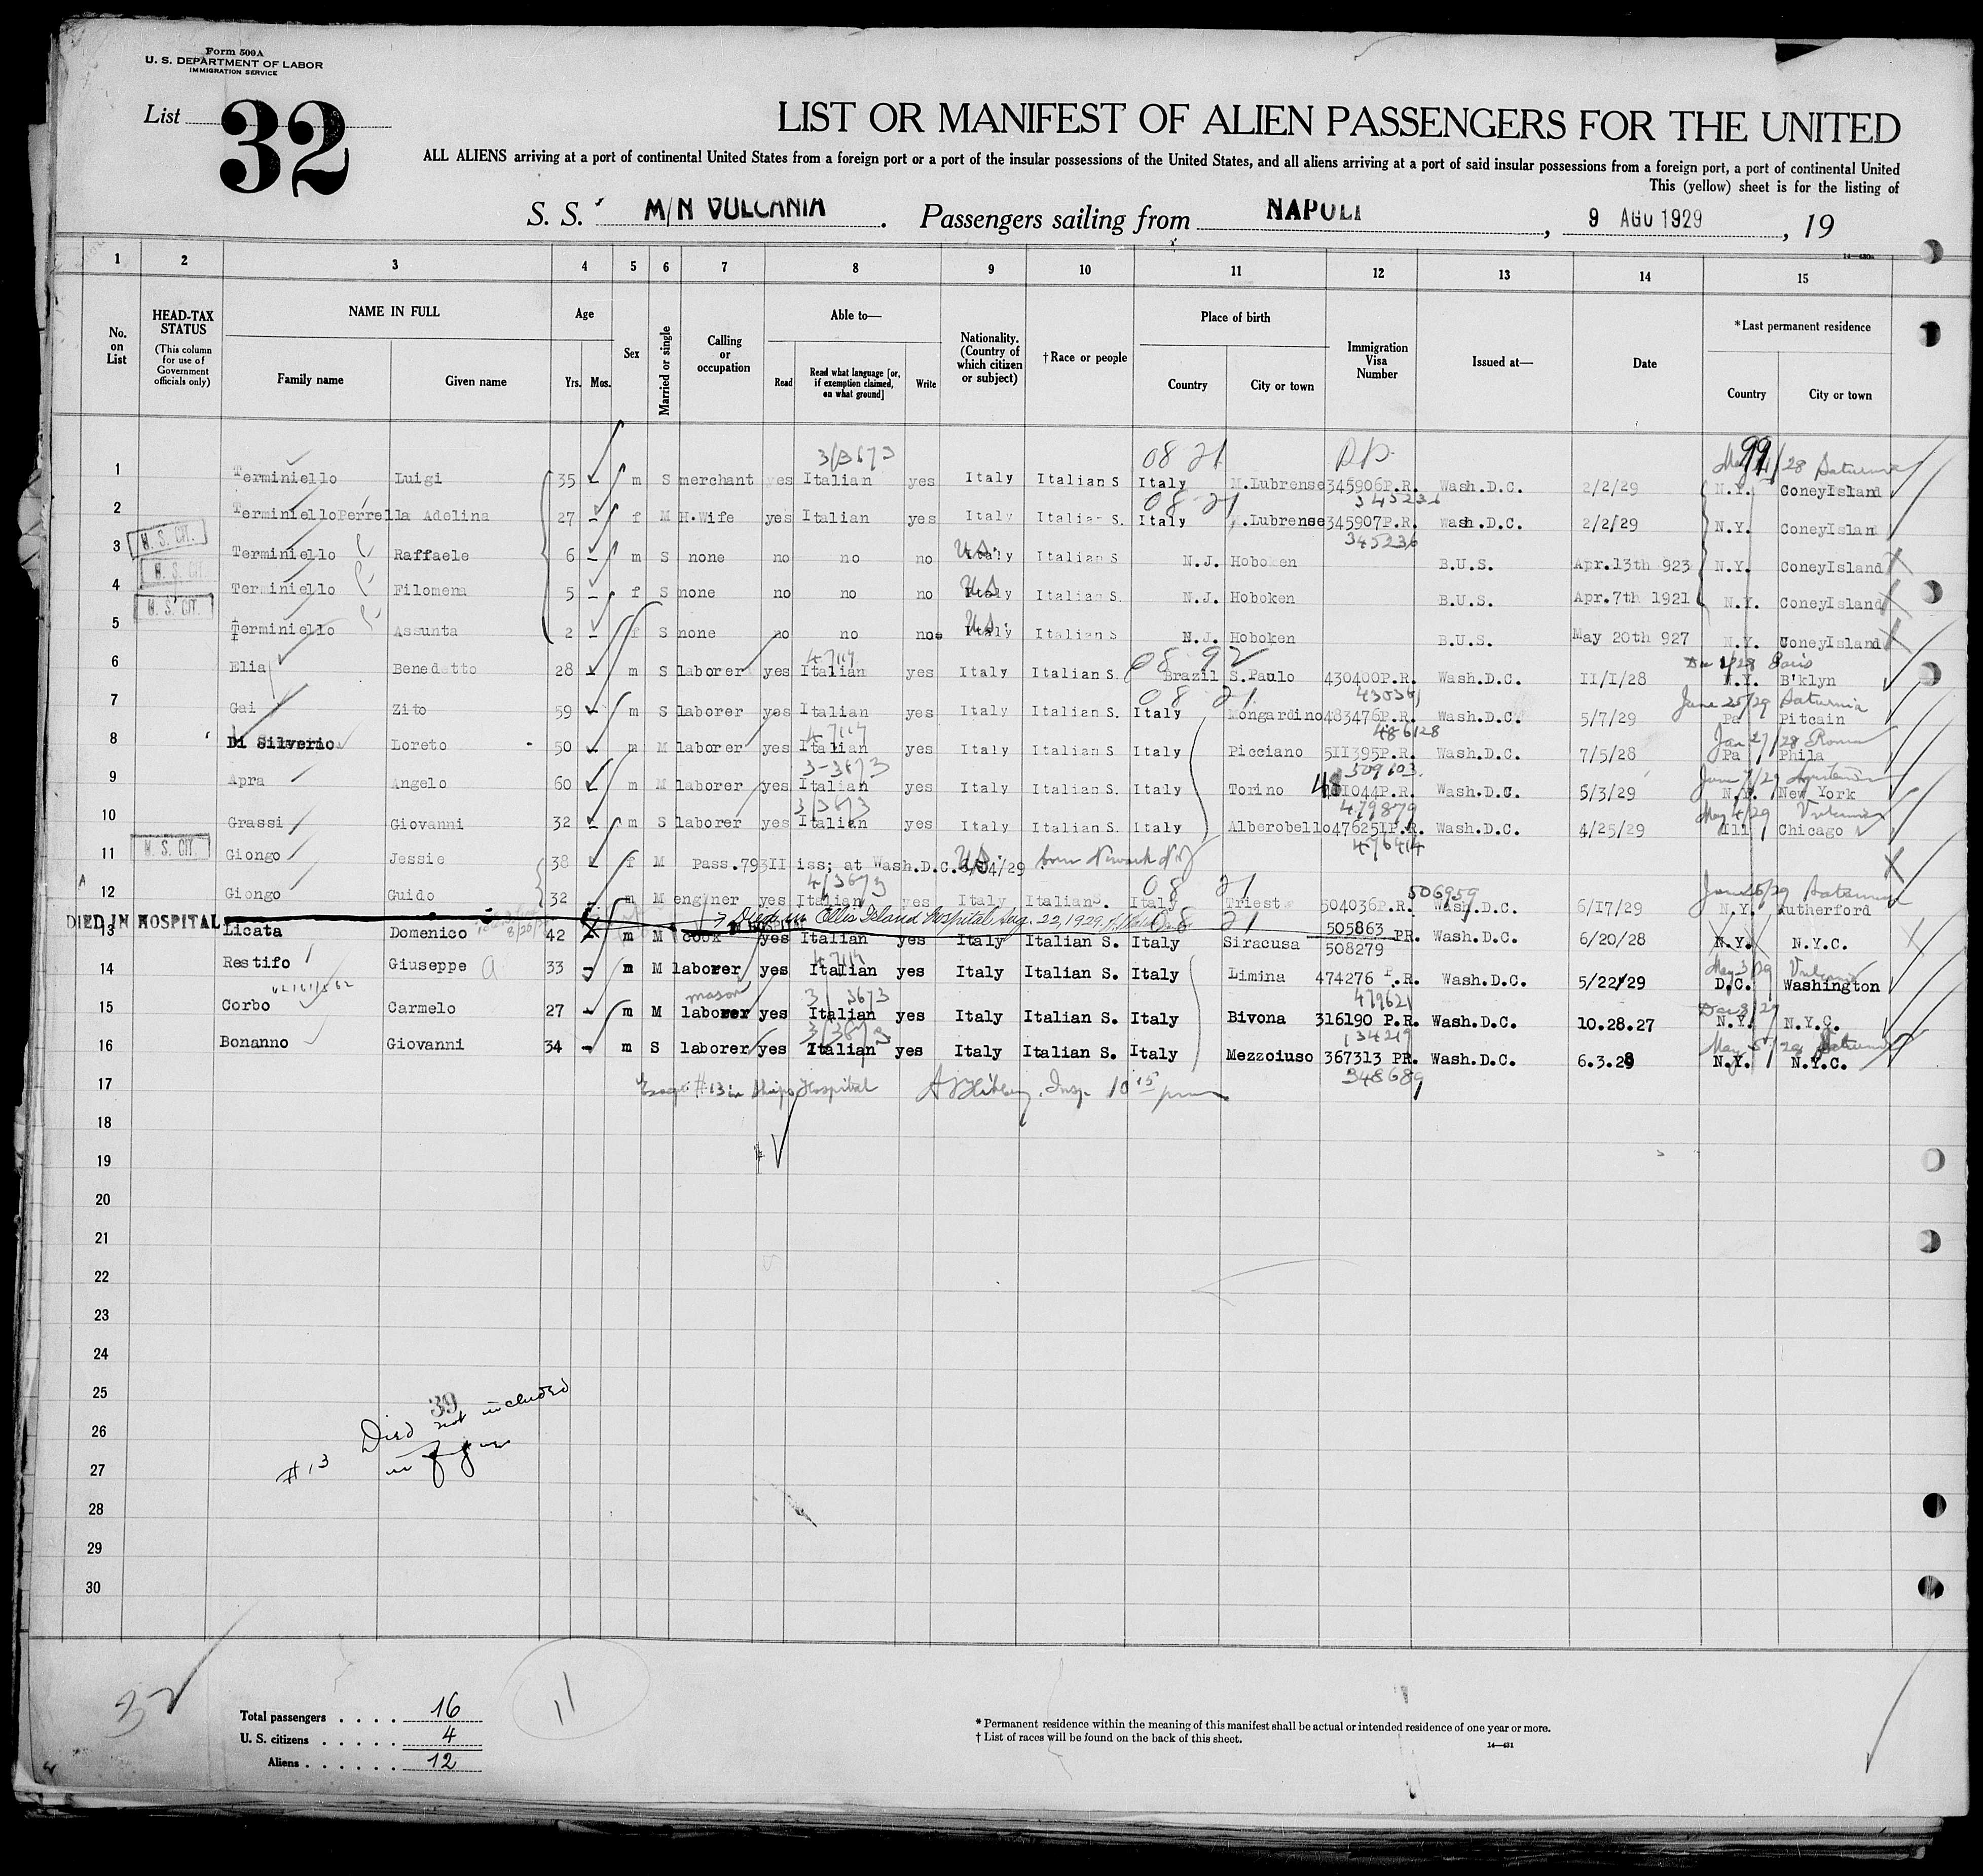 Form 500A
U. S. DEPARTMENT OF LABOR
IMMIGRATION SERVICE
List 32
LIST OR MANIFEST OF ALIEN PASSENGERS FOR THE UNITED
ALL ALIENS arriving at a port of continental United States from a foreign port or a port of the insular possessions of the United States, and all aliens arriving at a port of said insular possessions from a foreign port, a port of continental United
This (yellow) sheet is for the listing of
S. S. M/N VULCANIA. Passengers sailing from NAPOLI, 9 AGO 1929, 19
14—430a
1 2 3 4 5 6 7 8 9 10 11 12 13 14 15
No. on List
HEAD-TAX STATUS
(This column for use of Government officials only)
NAME IN FULL
Family name
Given name
Age
Yrs. Mos.
Sex
Married or single
Calling or occupation
Able to—
Read
Read what language [or, if exemption claimed, on what ground]
Write
Nationality. (Country of which citizen or subject)
†Race or people
Place of birth
Country
City or town
Immigration Visa Number
Issued at—
Date
*Last permanent residence
Country
City or town
3/3673 08 21 99 28 Saturnia
1 Terminiello Luigi 35 m S merchant yes Italian yes Italy Italian S Italy M.Lubrense 345906P.R. Wash.D.C. 2/2/29 N.Y. ConeyIsland
08 21 345236
2 Terminiello Perrella Adelina 27 f M H.Wife yes Italian yes Italy Italian S. Italy M.Lubrense 345907P.R. Wash.D.C. 2/2/29 N.Y. ConeyIslan
345236
3 U. S. CIT. Terminiello Raffaele 6 m S none no no no U.S. Italy Italian S N.J. Hoboken B.U.S. Apr.13th 923 N.Y. ConeyIsland
4 U. S. CIT. Terminiello Filomena 5 f S none no no no U.S. Italy Italian S. N.J. Hoboken B.U.S. Apr.7th 1921 N.Y. ConeyIsland
5 U. S. CIT. Terminiello Assunta 2 f S none no no no U.S. Italy Italian S N.J. Hoboken B.U.S. May 20th 927 N.Y. ConeyIsland
08 92
6 Elia Benedetto 28 m S laborer yes Italian yes Italy Italian S. Brazil S.Paulo 430400P.R. Wash.D.C. II/I/28 N.Y. B'klyn
08 21 June 25/29 Saturnia
7 Gai Zito 59 m S laborer yes Italian yes Italy Italian S. Italy Mongardino 483476P.R. Wash.D.C. 5/7/29 Pa Pitcain
486128 Jan 27/28 Roma
8 Di Silverio Loreto 50 m M laborer yes Italian yes Italy Italian S. Italy Picciano 5II395P.R. Wash.D.C. 7/5/28 Pa Phila
3-3673 509103
9 Apra Angelo 60 m M laborer yes Italian yes Italy Italian S. Italy Torino 48 I044P.R. Wash.D.C. 5/3/29 N.Y. New York
3/3673 479879 May 4/29 Vulcania
10 Grassi Giovanni 32 m S laborer yes Italian yes Italy Italian S. Italy Alberobello 47625IP.R. Wash.D.C. 4/25/29 Ill Chicago
476414
11 U. S. CIT. Giongo Jessie 38 f M Pass.793II iss; at Wash.D.C. U.S. /29 born Newark NJ
4/3673 08 21 506959
12 Giongo Guido 32 m M engineer yes Italian yes Italy Italian S. Italy Trieste 504036P.R. Wash.D.C. 6/17/29 N.Y. Rutherford
DIED IN HOSPITAL Died in Ellis Island Hospital Aug. 22, 1929 08 21 505863
13 Licata Domenico 42 m M cook yes Italian yes Italy Italian S. Italy Siracusa 508279 PR. Wash.D.C. 6/20/28 N.Y. N.Y.C.
May 3/29 Vulcania
14 Restifo Giuseppe 33 m M laborer yes Italian yes Italy Italian S. Italy Limina 474276 P.R. Wash.D.C. 5/22/29 D.C. Washington
mason 3/3673 479621
15 Corbo Carmelo 27 m M laborer yes Italian yes Italy Italian S. Italy Bivona 316190 P.R. Wash.D.C. 10.28.27 N.Y. N.Y.C.
13421
16 Bonanno Giovanni 34 m S laborer yes Italian yes Italy Italian S. Italy Mezzoiuso 367313 PR. Wash.D.C. 6.3.28 N.Y. N.Y.C.
17 #13 in Ships Hospital Insp. 10 15 pm 348689
18
19
20
21
22
23
24
25
39
26 Died not included
27 #13 in figures
28
29
30
32
11
Total passengers . . . . 16
U. S. citizens . . . . . 4
Aliens . . . . . . 12
* Permanent residence within the meaning of this manifest shall be actual or intended residence of one year or more.
† List of races will be found on the back of this sheet.
14—431